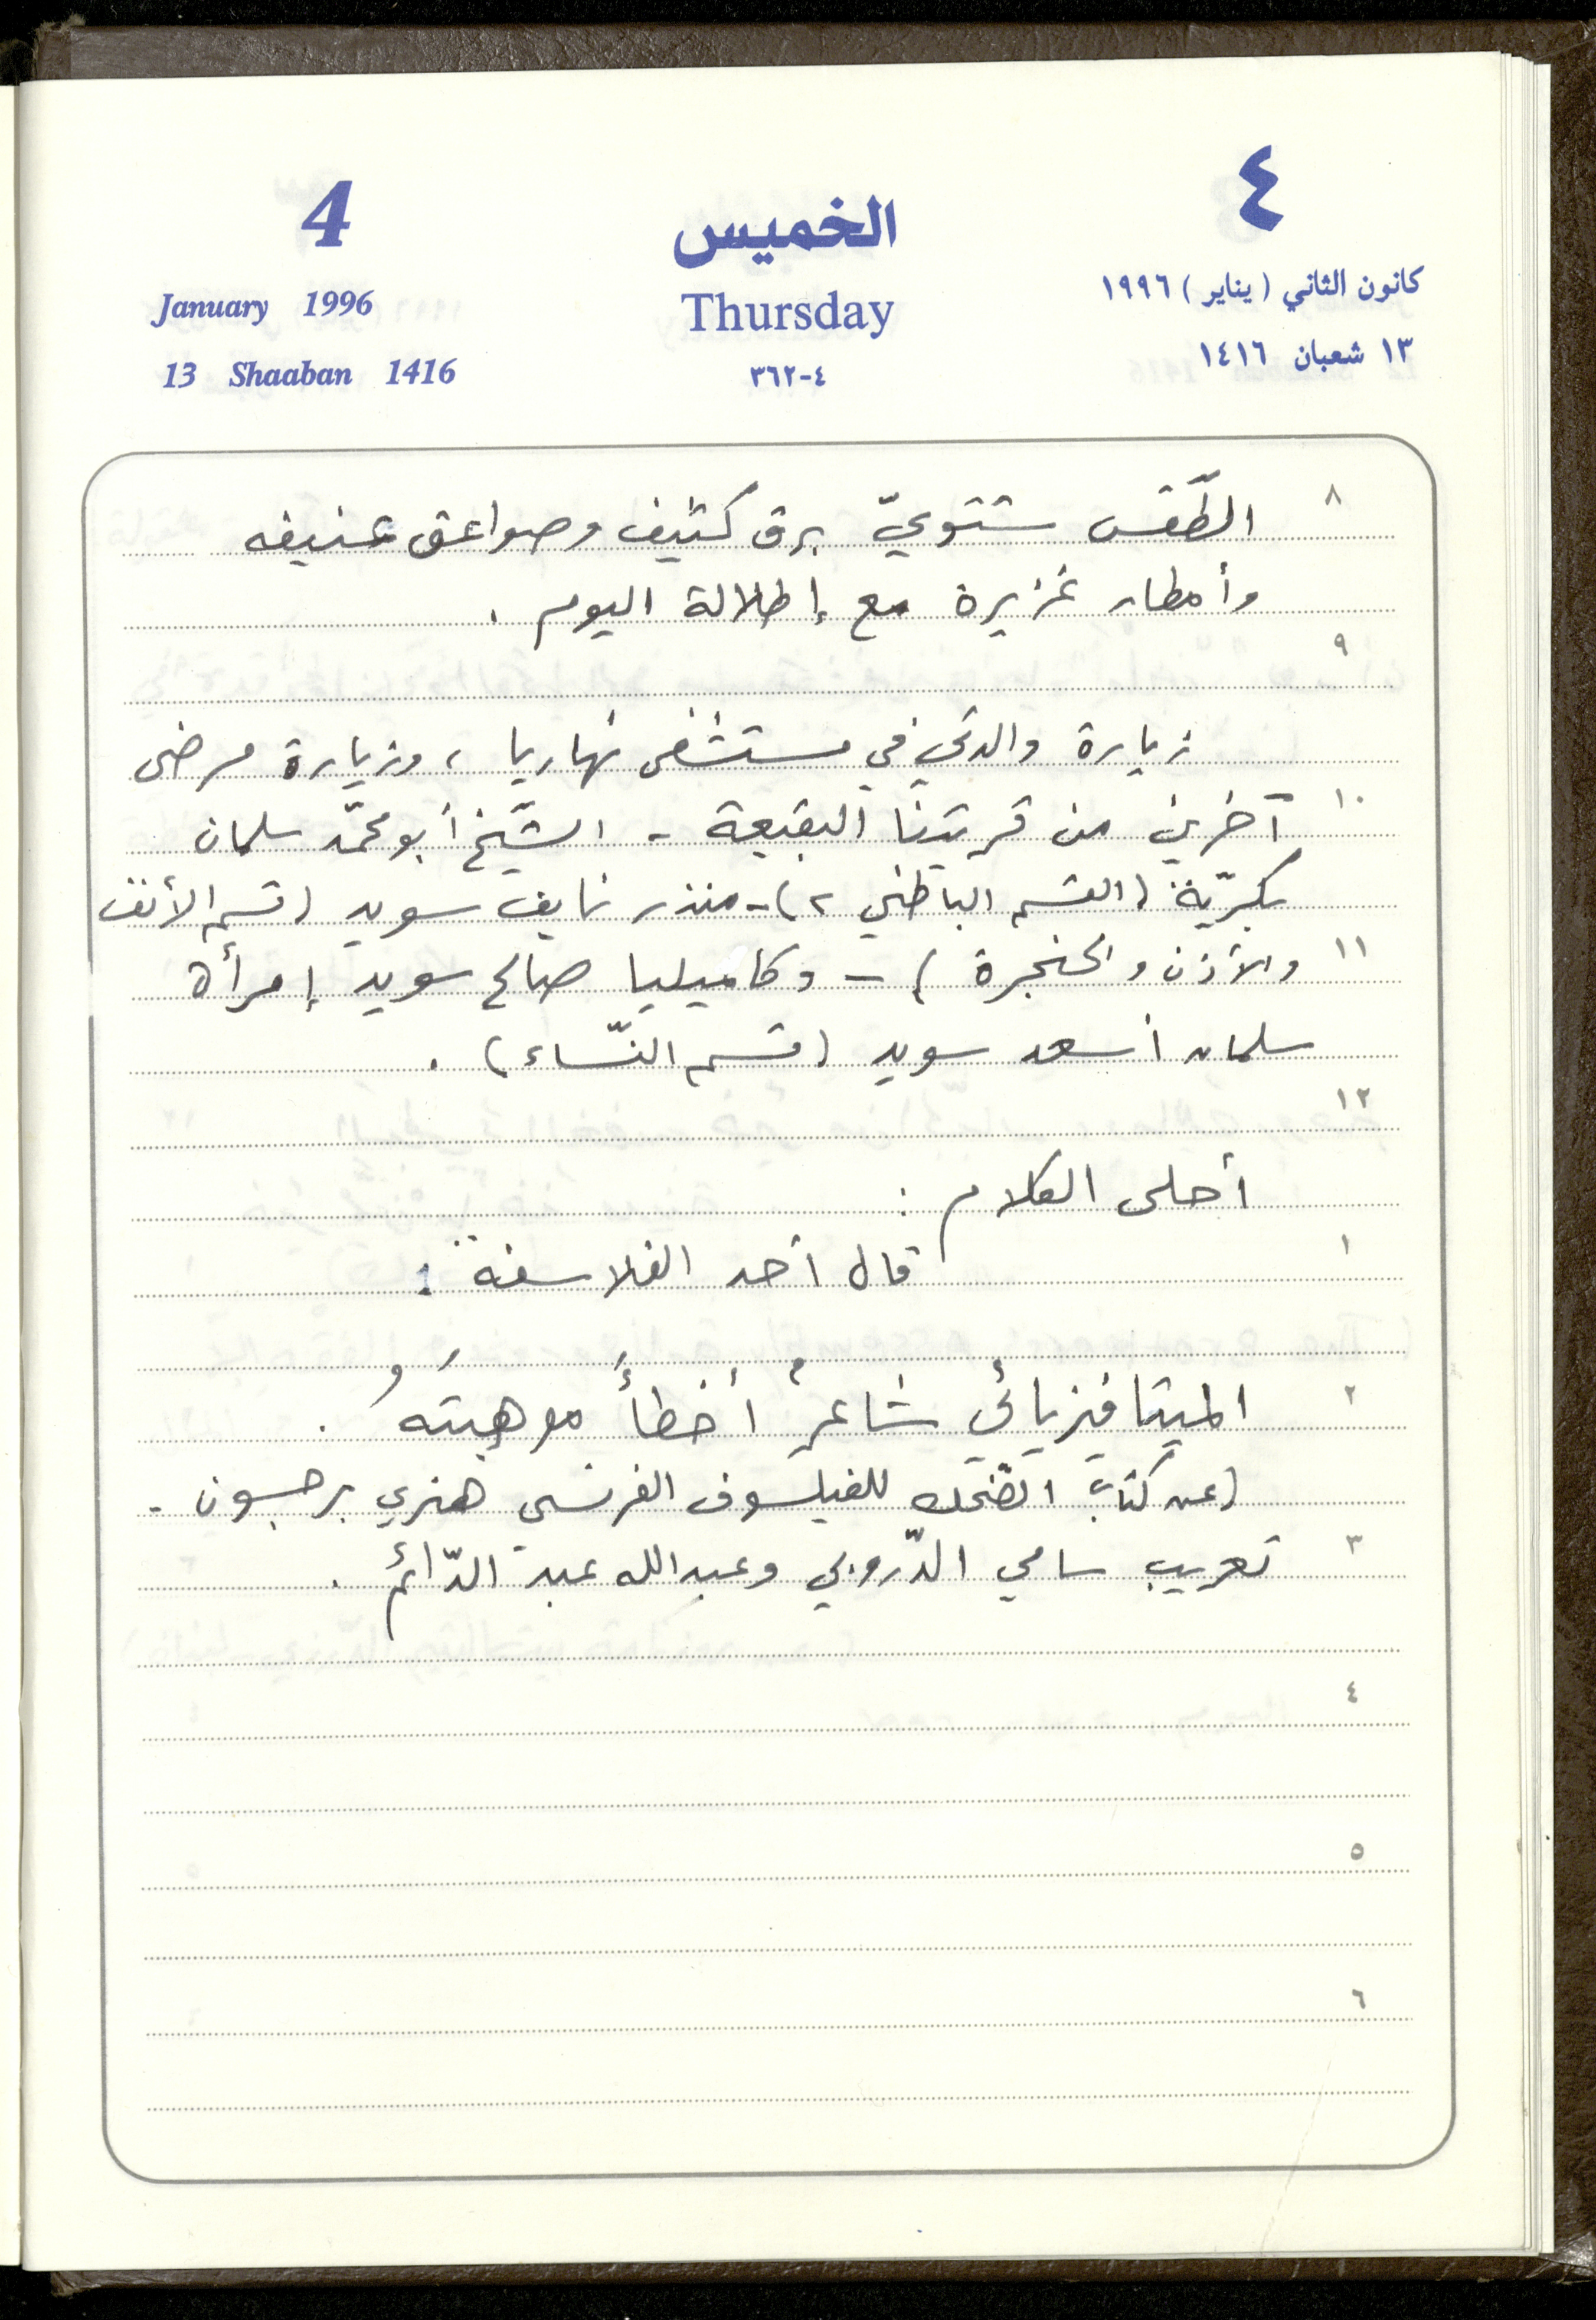 4
الخميس
٤
January 1996
Thursday
كانون الثاني (يناير) ١٩٩٦
13 Shaaban 1416
٣٦٢-٤
١٣ شعبان ١٤١٦
٨
الطّقس شتويّ برق كثيف وصواعق عنيفه
وأمطار غزيرة مع إطلالة اليوم.
٩
زيارة والدتي في مستشفى نهاريا، وزيارة مرضى
١٠
آخرين من قريتنا البقيعة - الشّيخ أبو محمّد سلمان
بكريّة (القسم الباطني ٢) - منذر نايف سويد (قسم الأنف
١١
والأذن والحنجرة) - وكاميليا صالح سويد إمرأة
سلمان أسعد سويد (قسم النّساء).
١٢
أحلى الكلام:
١
قال أحد الفلاسفة:
٢
الميتافيزيائي شاعرٌ أخطأَ موهبتَهُ.
(عن كتاب الضّحك للفيلسوف الفرنسي هنري برجسون -
٣
تعريب سامي الدّروبي وعبدالله عبد الدّائم.
٤
٥
٦